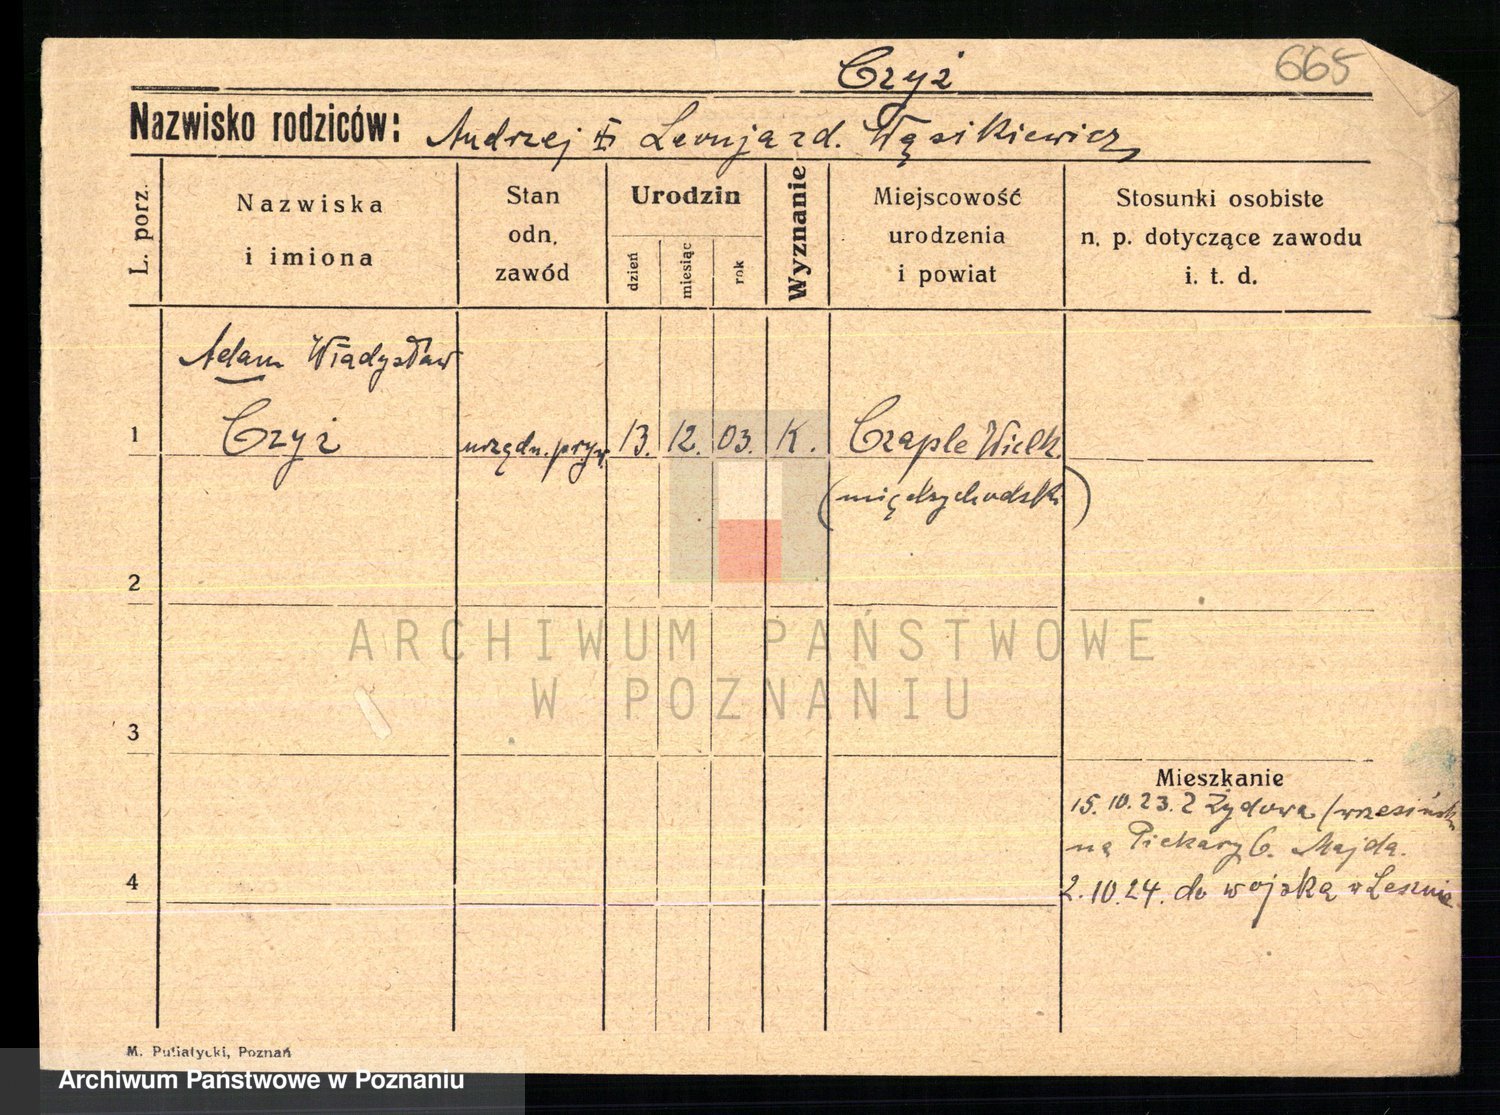 665
Czyż
Nazwisko rodziców: Andrzej i Leonja zd. Wąsikiewicz
L. porz.
Nazwiska
i imiona
Stan
odn.
zawód
Urodzin
dzień
miesiąc
rok
Wyznanie
Miejscowość
urodzenia
i powiat
Stosunki osobiste
n. p. dotyczące zawodu
i. t. d.
Adam Władysław
1 Czyż urzędn. pryw. 13. 12. 03. K. Czaple Wielk.
(międzychodski)
2
ARCHIWUM PAŃSTWOWE
W POZNANIU
3
Mieszkanie
15.10.23. z Żydowa (wrzesińsk
na Piekary 6. Majda.
4
2.10.24. do wojska w Lesznie
M. Putiatycki, Poznań
Archiwum Państwowe w Poznaniu